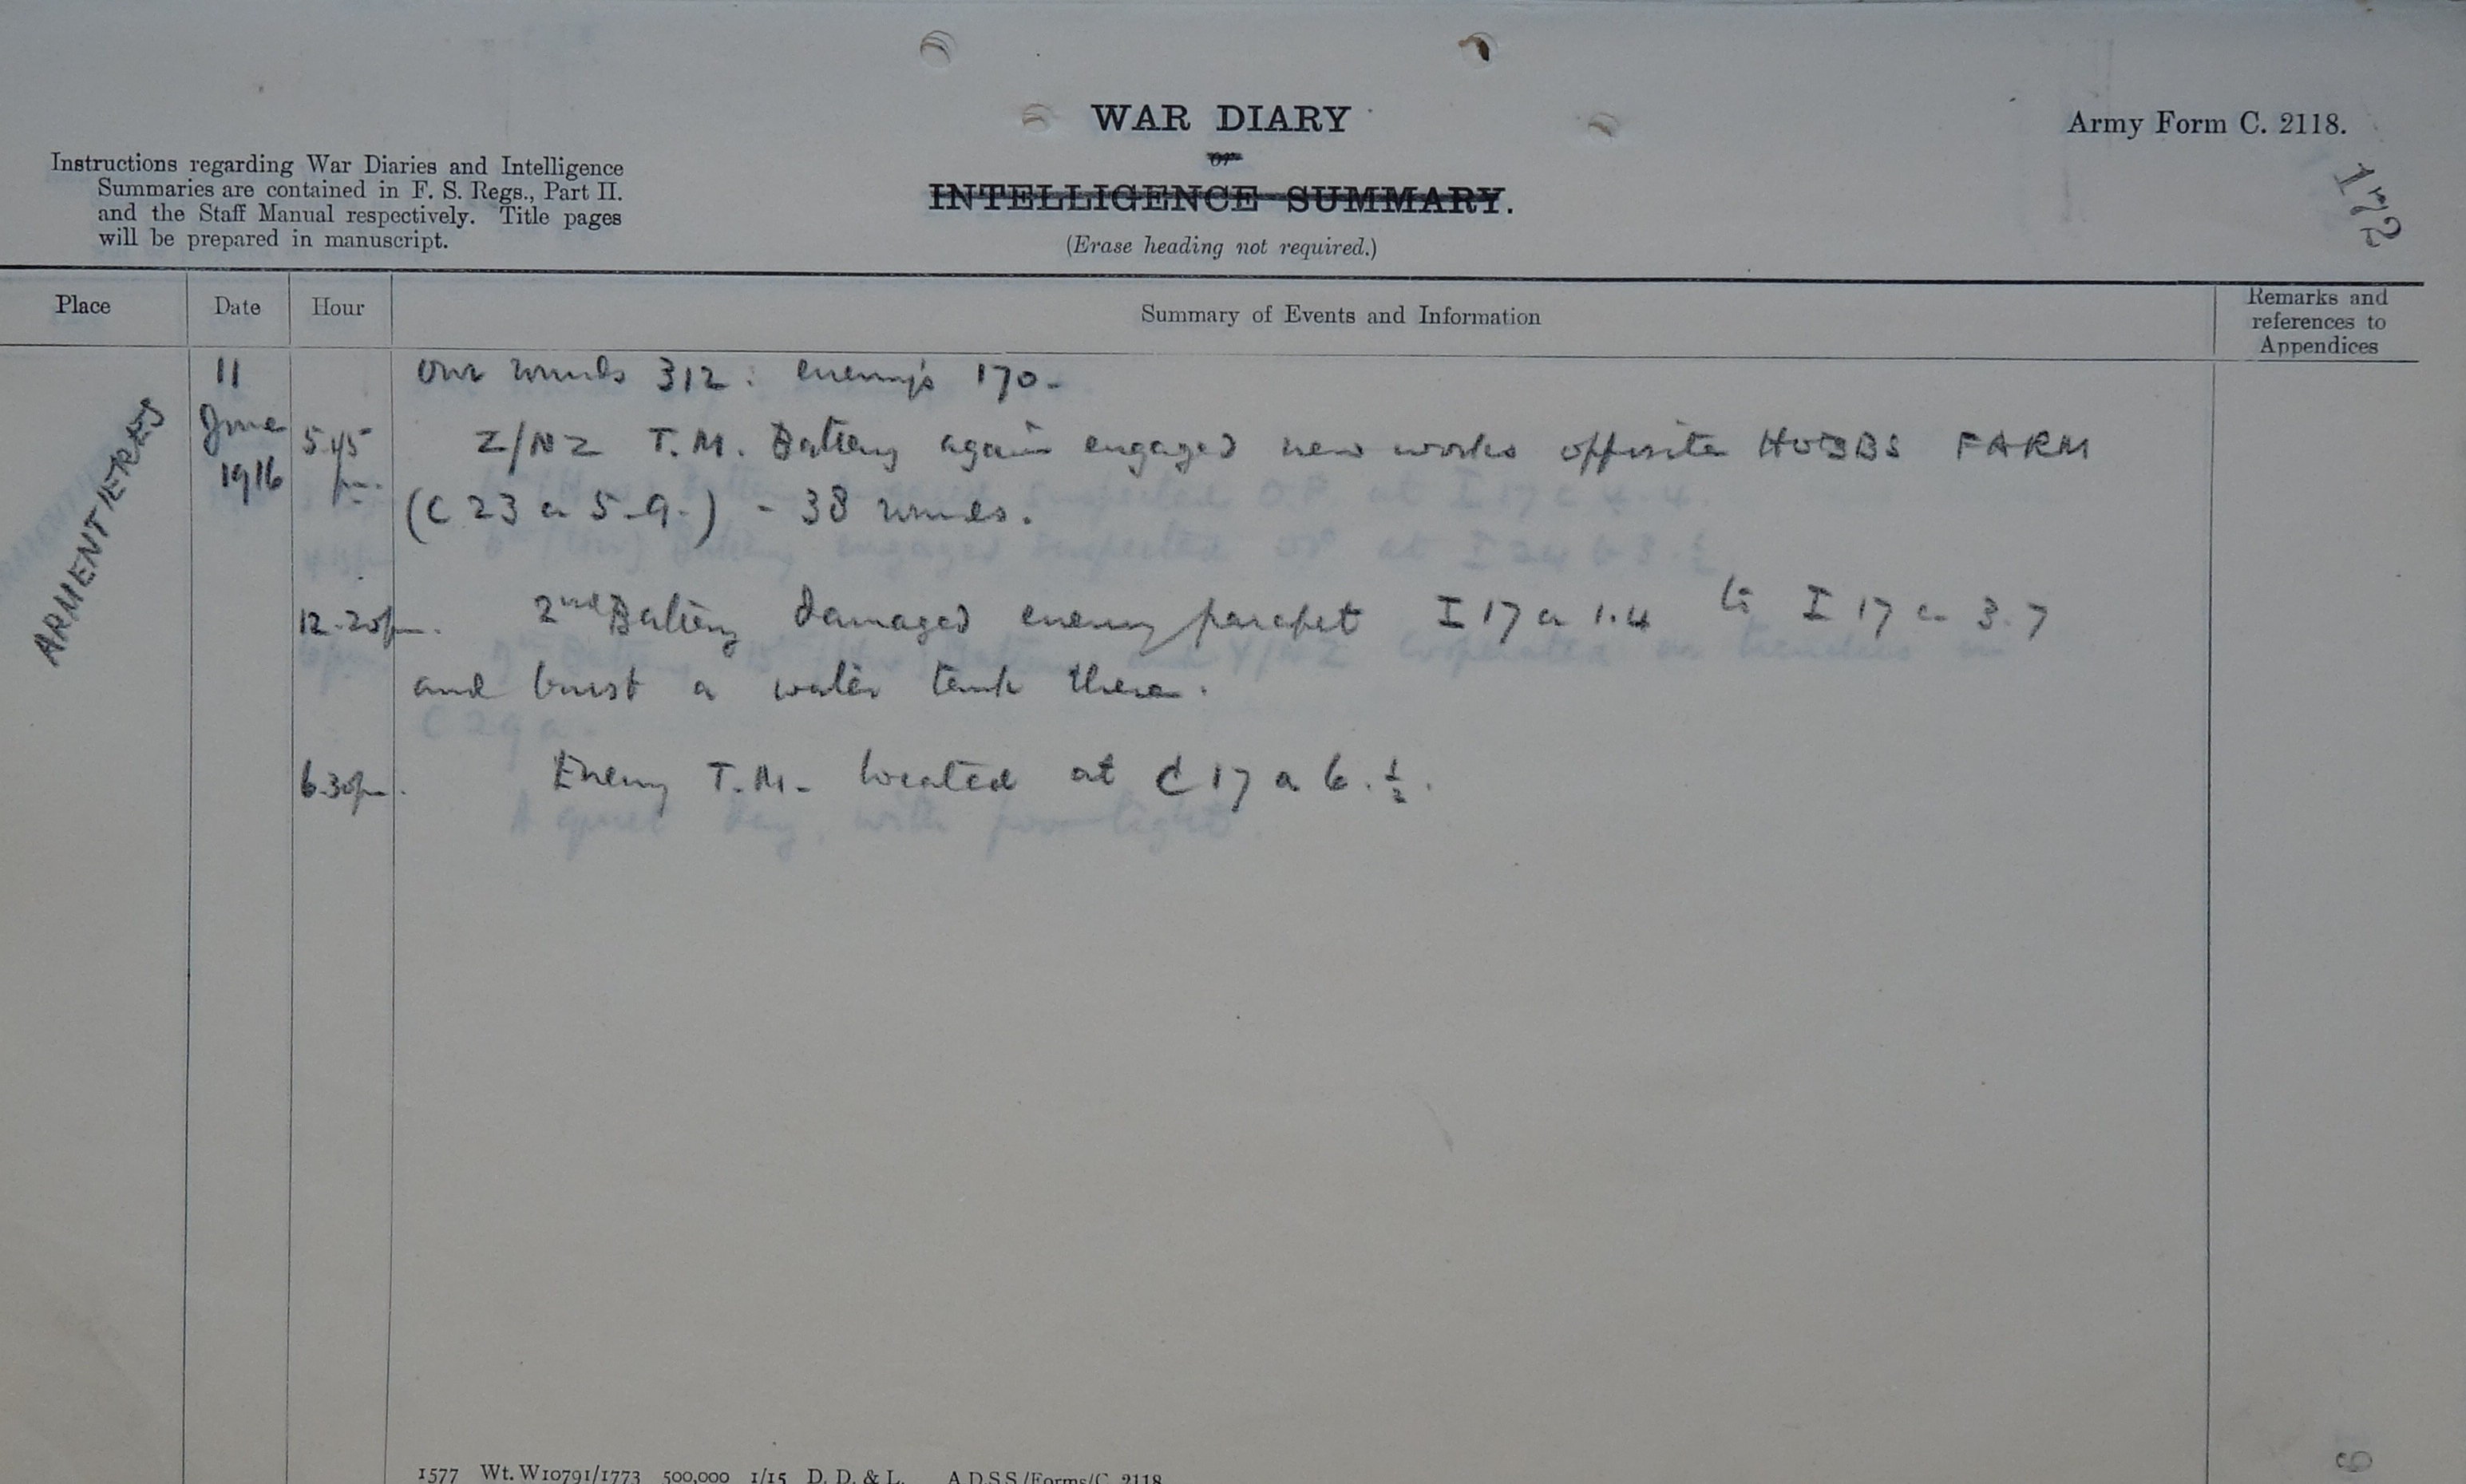 WAR DIARY
or
INTELLIGENCE SUMMARY.
(Erase heading not required.)
Army Form C. 2118.
172
Instructions regarding War Diaries and Intelligence
Summaries are contained in F. S. Regs., Part II.
and the Staff Manual respectively. Title pages
will be prepared in manuscript.
Place Date Hour Summary of Events and Information Remarks and
references to
Appendices
ARMENTIERES
11
June
1916
Our rounds 312 : enemy's 170 -
5.45
pm.
Z/NZ T.M. Battery again engaged new works opposite HOBBS FARM
(C 23 a 5.9.) - 38 rounds.
12.20pm. 2nd Battery damaged enemy parapet I 17 a 1.4 to I 17 a 3.7
and burst a water tank there.
6.30pm. Enemy T.M. located at C 17 a 6.½.
1577 Wt. W10791/1773 500,000 1/15 D. D. & L. A.D.S.S./Forms/C. 2118.